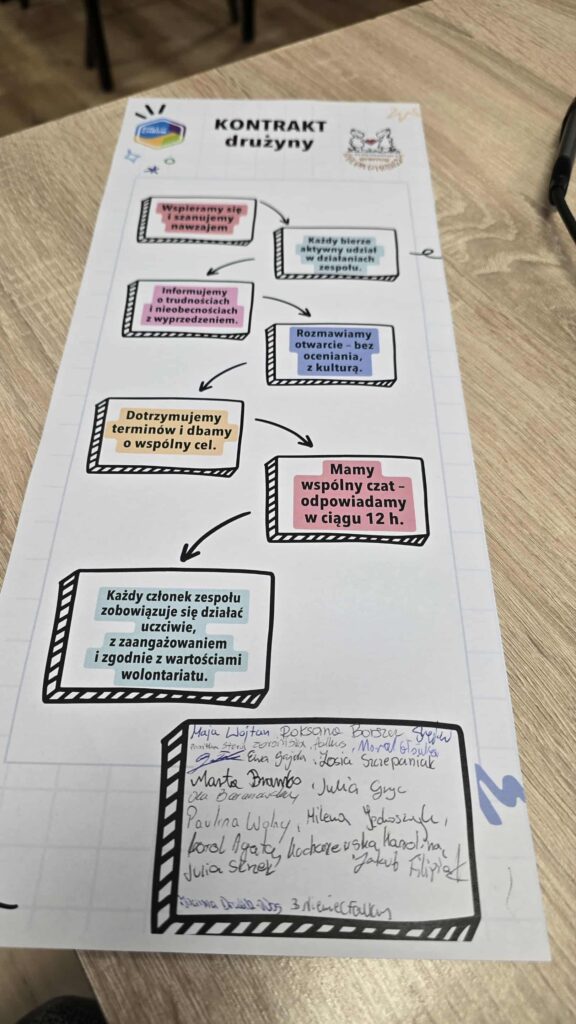 KONTRAKT
drużyny
Wspieramy się
i szanujemy
nawzajem
Każdy bierze
aktywny udział
w działaniach
zespołu.
Informujemy
o trudnościach
i nieobecnościach
z wyprzedzeniem.
Rozmawiamy
otwarcie – bez
oceniania,
z kulturą.
Dotrzymujemy
terminów i dbamy
o wspólny cel.
Mamy
wspólny czat –
odpowiadamy
w ciągu 12 h.
Każdy członek zespołu
zobowiązuje się działać
uczciwie,
z zaangażowaniem
i zgodnie z wartościami
wolontariatu.
Maja Wojtan Roksana
Ewa Gajda, Zosia Szczepaniak
Marta, Julia Gryc
Paulina, Milena
Karolina,
Julia Jakub